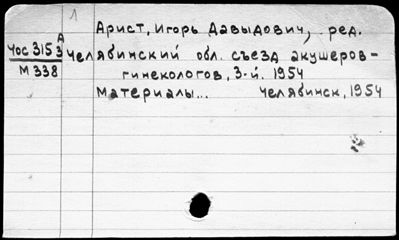 1
Арист, Игорь Давыдович, ред.
А
Чос 3153
М 338
Челябинский обл. съезд акушеров-
гинекологов, 3-й. 1954
Материалы... Челябинск, 1954